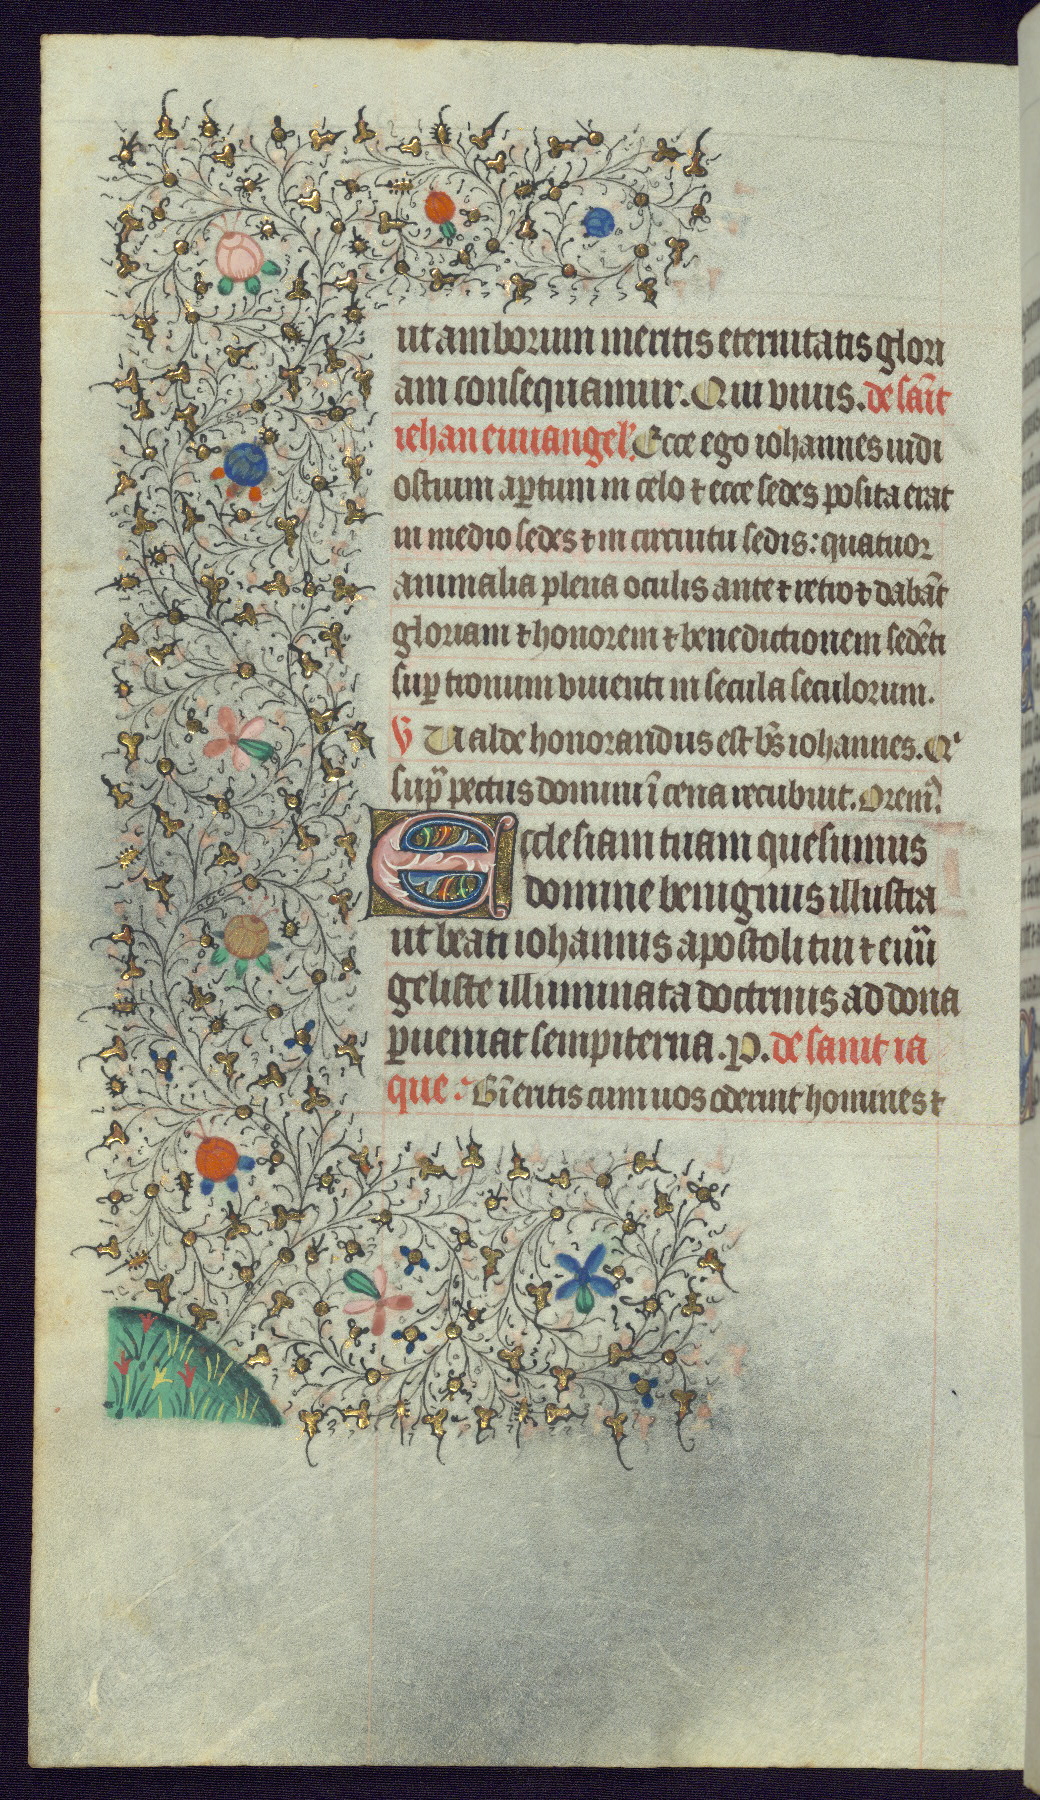 ut amborum meritis eternitatis glori
am consequamur. Qui viuis. de sãit
iehan euuangel'. Ecce ego iohannes uidi
ostium aꝑtum in celo ⁊ ecce sedes posita erat
in medio sedes ⁊ in circuitu sedis: quatuor
animalia plena oculis ante ⁊ retro ⁊ dabãt
gloriam ⁊ honorem ⁊ benedictionem sedẽti
suꝑ tronum viuenti in secula seculorum.
V Valde honorandus est bs̃ iohannes. Q'
sup̃ pectus domini ĩ cena recubuit. Orem'.
Ecclesiam tuam quesumus
domine benignus illustra
ut beati iohannis apostoli tui ⁊ euũ
geliste illuminata doctrinis ad dona
ꝑueniat sempiterna. P. de saint ia
que. Bñ eritis cum uos oderint homines ⁊